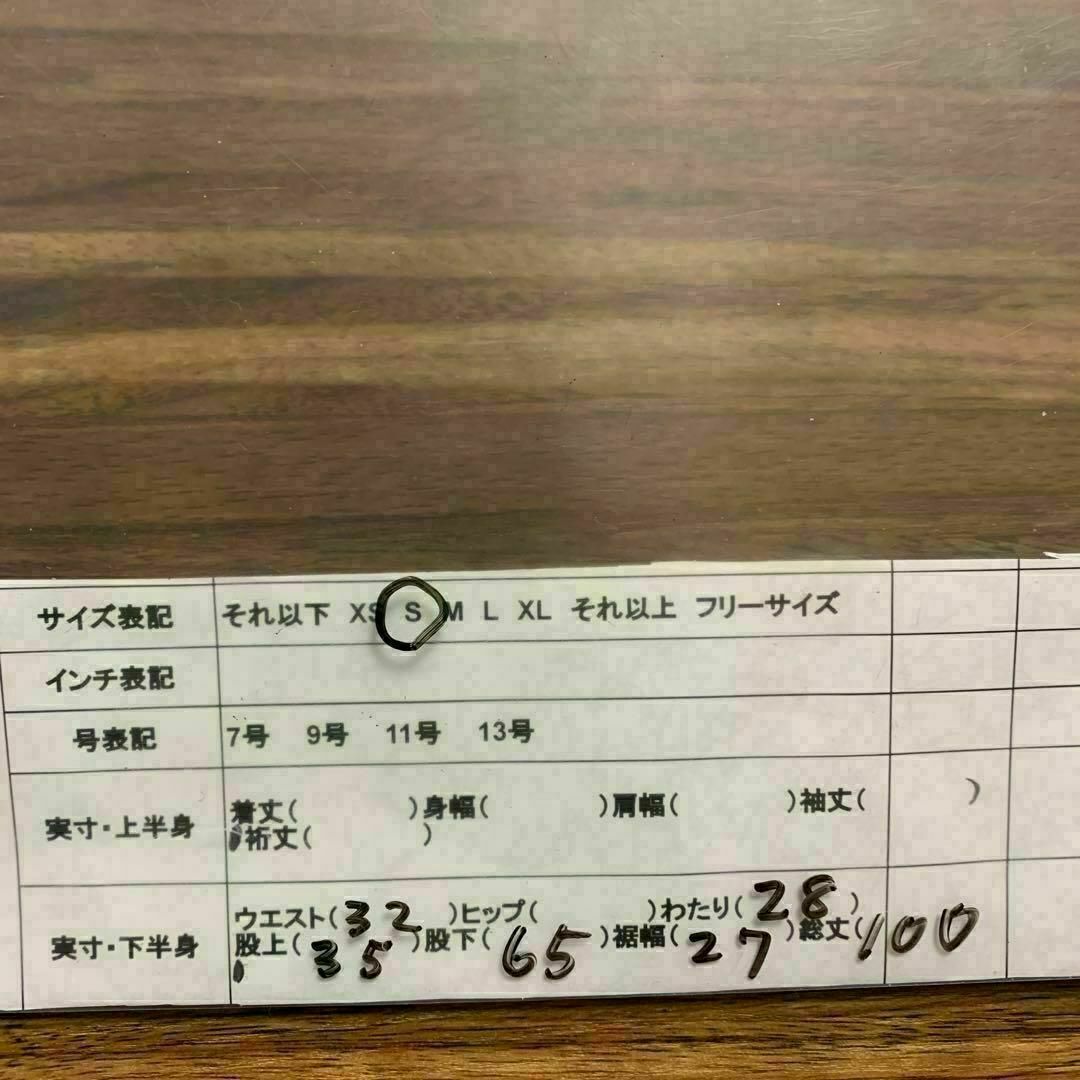 サイズ表記 それ以下 XS S M L XL それ以上 フリーサイズ
インチ表記
号表記 7号 9号 11号 13号
実寸・上半身 着丈( )身幅( )肩幅( )袖丈( )
裄丈( )
実寸・下半身 ウエスト(32 )ヒップ( )わたり(28 )
股上(35 )股下(65 )裾幅(27 )総丈(100